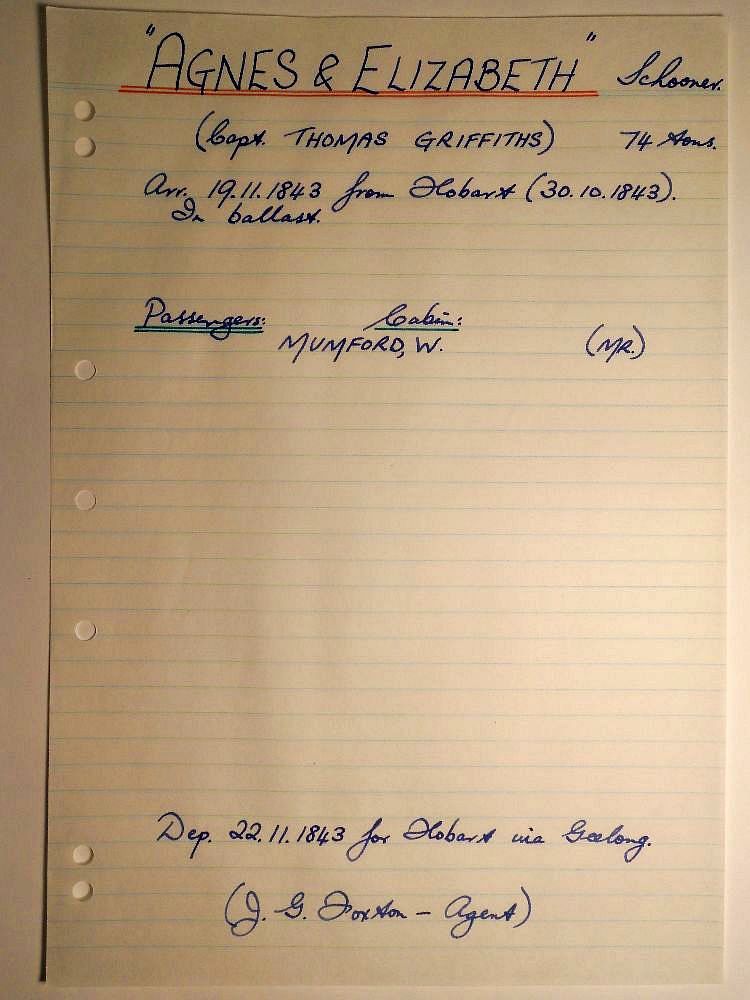 "AGNES & ELIZABETH" Schooner.
(Capt. THOMAS GRIFFITHS) 74 tons.
Arr. 19.11.1843 from Hobart (30.10.1843).
In ballast.
Passengers: Cabin:
MUMFORD, W. (MR.)
Dep. 22.11.1843 for Hobart via Geelong.
(J. G. Foxton - Agent)